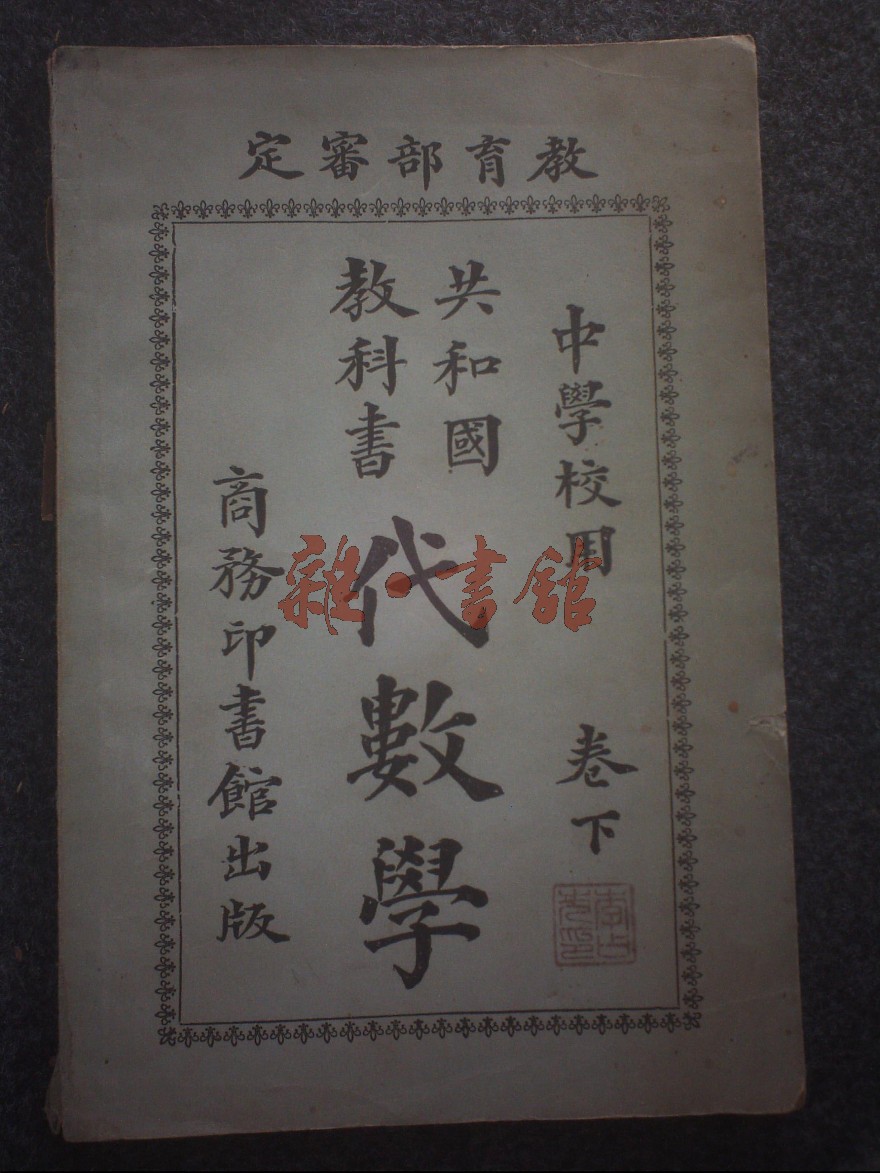 教育部審定
中學校用 卷下
共和國
教科書
代數學
商務印書館出版
雜·書館